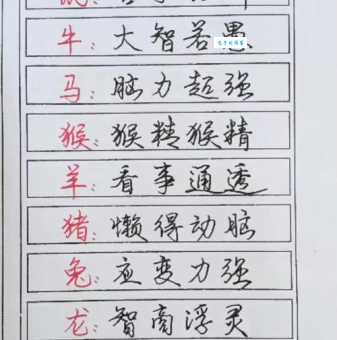 牛：大智若愚
马：脑力超强
猴：猴精猴精
羊：看事通透
猪：懒得动脑
兔：应变力强
龙：智商浮灵